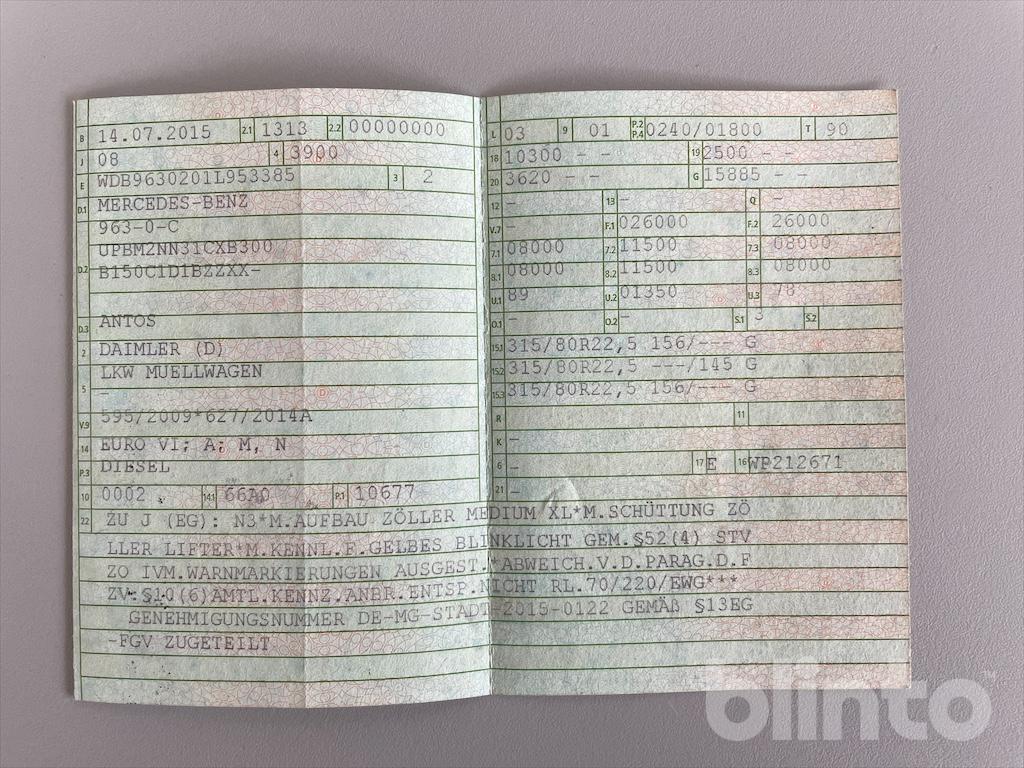 B 14.07.2015 2.1 1313 2.2 00000000
J 08 4 3900
E WDB9630201L953385 3 2
D.1 MERCEDES-BENZ
963-0-C
D.2 UPBM2NN31CXB300
B150C1D1BZZXX-
D.3 ANTOS
2 DAIMLER (D)
5 LKW MUELLWAGEN
-
V.9 595/2009*627/2014A
14 EURO VI; A; M, N
P.3 DIESEL
10 0002 14.1 66A0 P.1 10677
L 03 9 01 P.2 P.4 0240/01800 T 90
18 10300 - - 19 2500 - -
20 3620 - - G 15885 - -
12 - 13 - Q -
V.7 - F.1 026000 F.2 26000
7.1 08000 7.2 11500 7.3 08000
8.1 08000 8.2 11500 8.3 08000
U.1 89 U.2 01350 U.3 78
O.1 - O.2 - S.1 3 S.2
15.1 315/80R22,5 156/--- G
15.2 315/80R22,5 ---/145 G
15.3 315/80R22,5 156/--- G
R 11
K -
6 - 17 E 16 WP212671
21 -
22 ZU J (EG): N3*M.AUFBAU ZÖLLER MEDIUM XL*M.SCHÜTTUNG ZÖ
LLER LIFTER*M.KENNL.F.GELBES BLINKLICHT GEM.§52(4) STV
ZO IVM.WARNMARKIERUNGEN AUSGEST.*ABWEICH.V.D.PARAG.D.F
ZV:§10(6)AMTL.KENNZ.ANBR.ENTSP.NICHT RL.70/220/EWG***
GENEHMIGUNGSNUMMER DE-MG-STADT-2015-0122 GEMÄß §13EG
-FGV ZUGETEILT
blinto